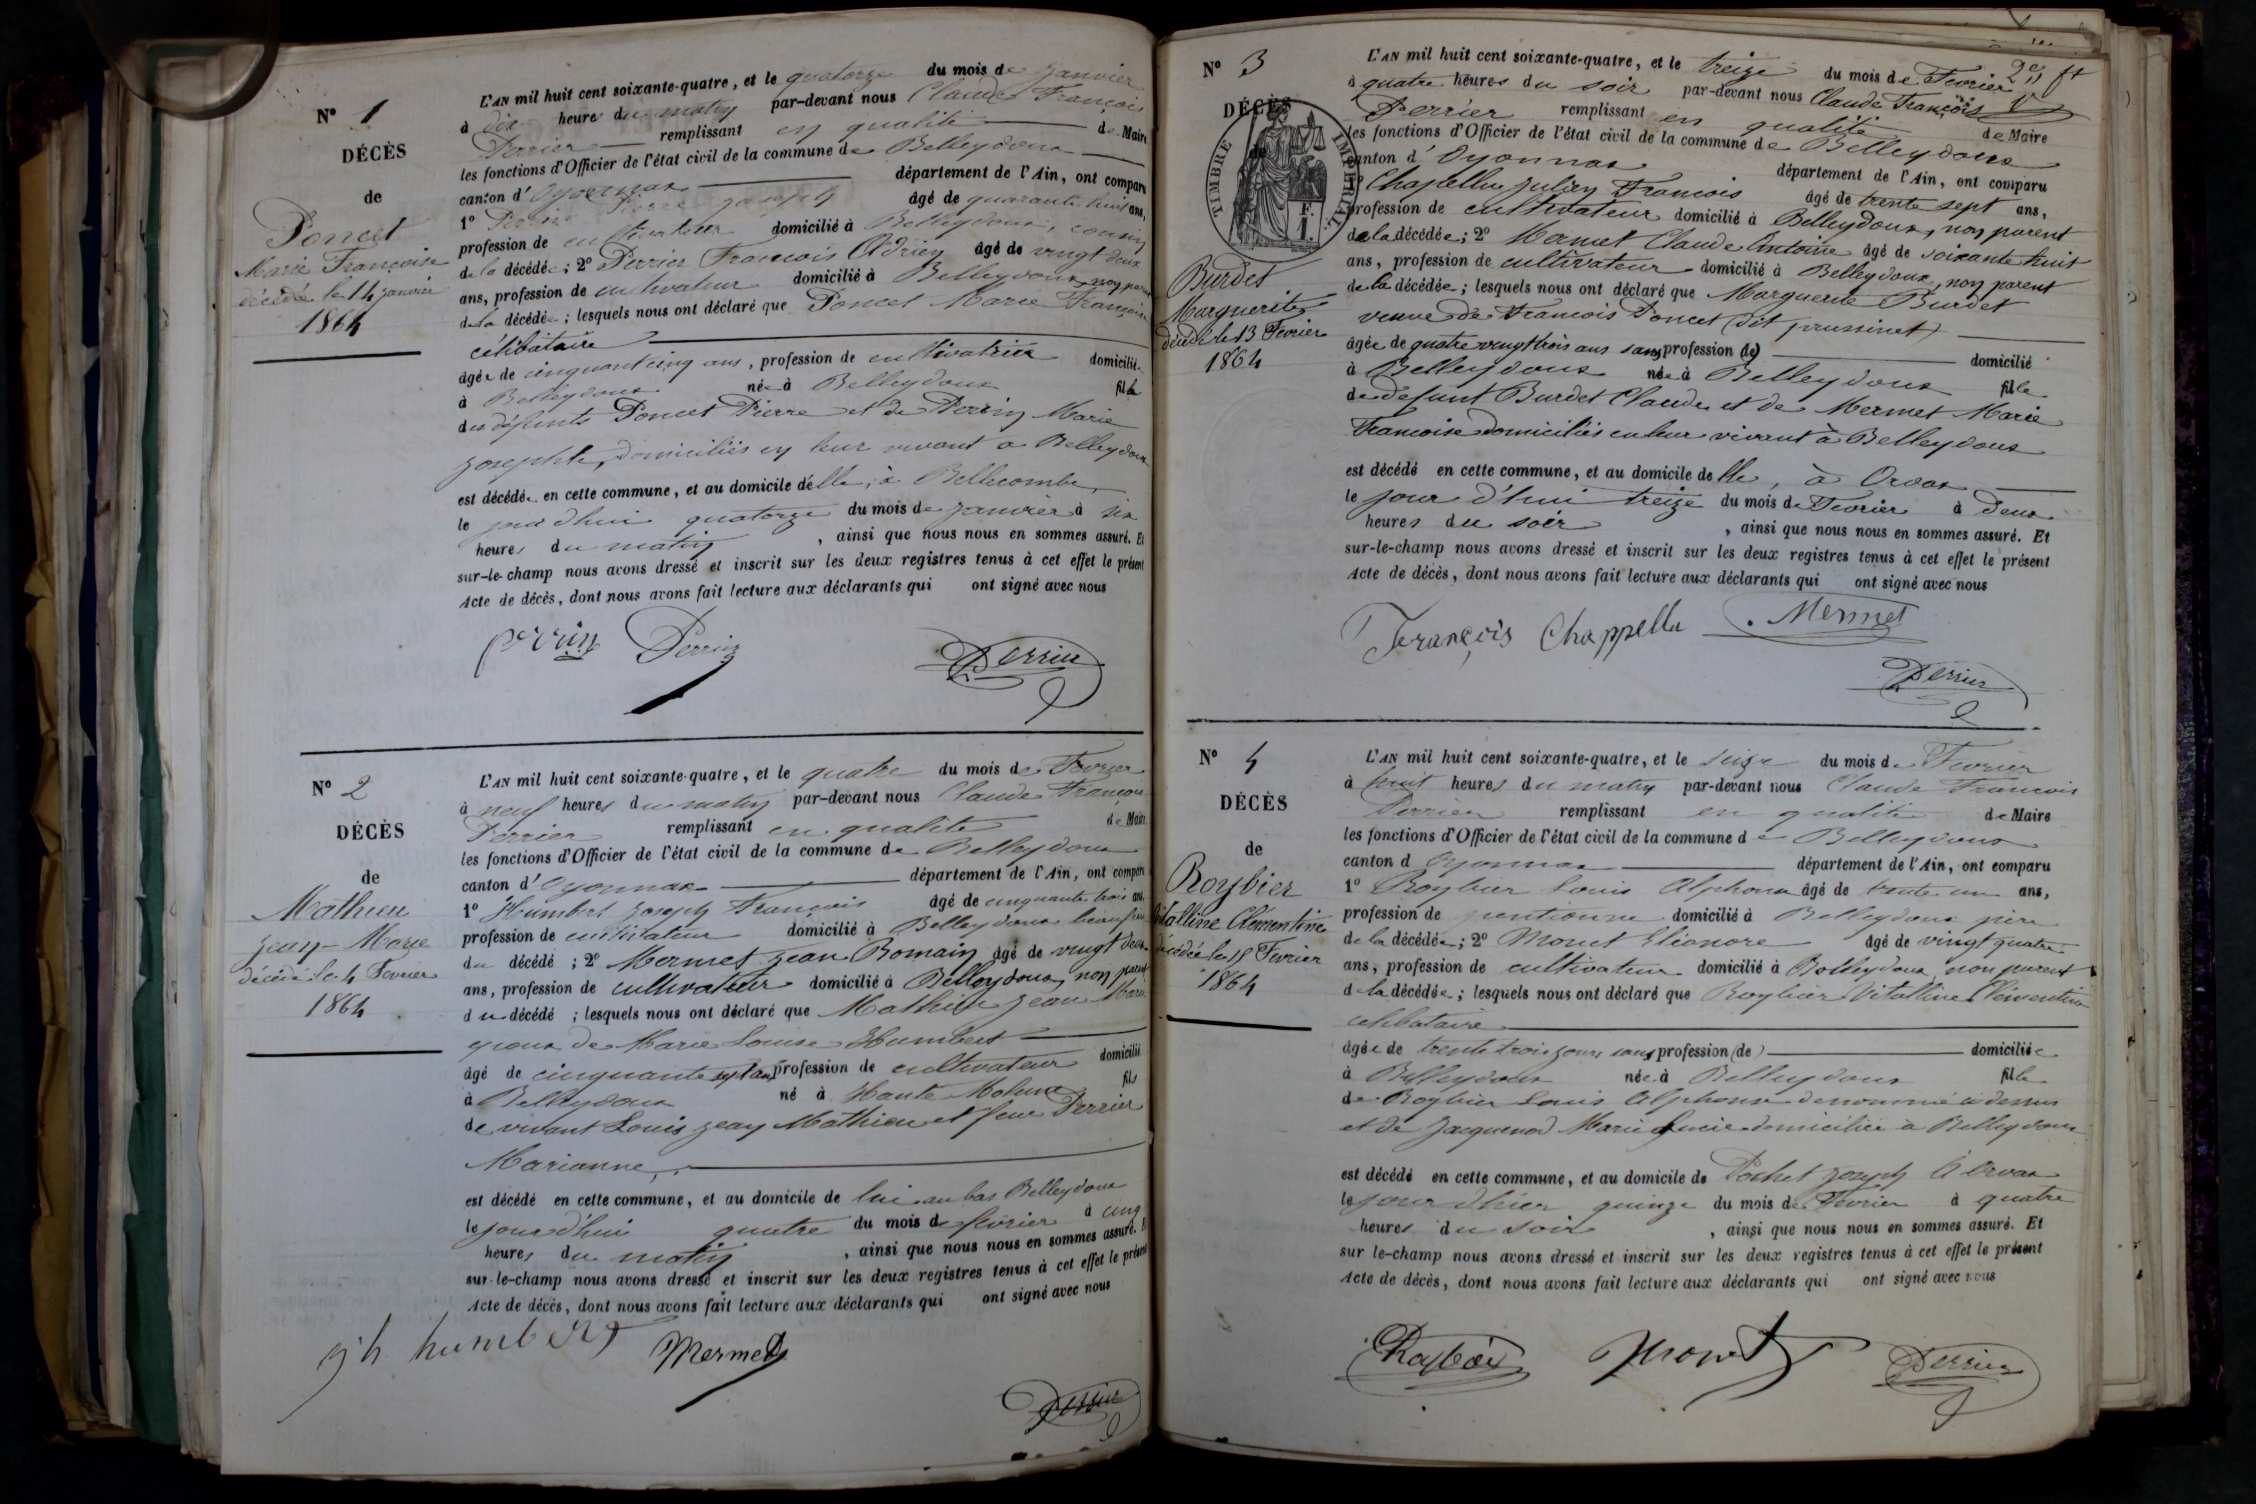 N° 1
DÉCÈS
de
Poncet
Marie Françoise
décédée le 14 janvier
1864
L'AN mil huit cent soixante-quatre, et le quatorze du mois de janvier
à dix heures du matin par-devant nous Claude François
Perrier remplissant en qualité de Maire
les fonctions d'Officier de l'état civil de la commune de Belleydoux
canton d'Oyonnax département de l'Ain, ont comparu
1° Perrin Pierre joseph âgé de quarante huit ans,
profession de cultivateur domicilié à Belleydoux, cousin
de la décédée; 2° Perrier François Adrien âgé de vingt deux
ans, profession de cultivateur domicilié à Belleydoux, non parent
de la décédée; lesquels nous ont déclaré que Poncet Marie Françoise
célibataire
âgée de cinquante cinq ans, profession de cultivatrice domiciliée
à Belleydoux née à Belleydoux fille
des défunts Poncet Pierre et de Perrin Marie
josephte, domiciliés en leur vivant à Belleydoux
est décédée en cette commune, et au domicile d'elle, à Bellecombe,
le jour d'hui quatorze du mois de janvier à six
heures du matin, ainsi que nous nous en sommes assuré. Et
sur-le-champ nous avons dressé et inscrit sur les deux registres tenus à cet effet le présent
Acte de décès, dont nous avons fait lecture aux déclarants qui ont signé avec nous
perrin Perrier Perrier
N° 2
DÉCÈS
de
Mathieu
jean-Marie
décédé le 4 Fevrier
1864
L'AN mil huit cent soixante-quatre, et le quatre du mois de Fevrier
à neuf heures du matin par-devant nous Claude François
Perrier remplissant en qualité de Maire
les fonctions d'Officier de l'état civil de la commune de Belleydoux
canton d'Oyonnax département de l'Ain, ont comparu
1° Humbert joseph François âgé de cinquante trois ans,
profession de cultivateur domicilié à Belleydoux beaufrère
du décédé; 2° Mermet jean Romain âgé de vingt deux
ans, profession de cultivateur domicilié à Belleydoux, non parent
du décédé; lesquels nous ont déclaré que Mathieu jean Marie
epoux de Marie Louise Humbert
âgé de cinquante sept ans, profession de cultivateur domicilié
à Belleydoux né à Haute Molune fils
de vivant Louis jean Mathieu et feue Perrier
Marianne,
est décédé en cette commune, et au domicile de lui au bas Belleydoux
le jour d'hui quatre du mois de fevrier à cinq
heures du matin, ainsi que nous nous en sommes assuré. Et
sur-le-champ nous avons dressé et inscrit sur les deux registres tenus à cet effet le présent
Acte de décès, dont nous avons fait lecture aux déclarants qui ont signé avec nous
jh humbert Mermet
Perrier
N° 3
DÉCÈS
de
TIMBRE IMPERIAL
F.
1.
Burdet
Marguerite
décédée le 13 Fevrier
1864
L'AN mil huit cent soixante-quatre, et le treize du mois de Fevrier
à quatre heures du soir par-devant nous Claude François
Perrier remplissant en qualité de Maire
les fonctions d'Officier de l'état civil de la commune de Belleydoux
canton d'Oyonnax département de l'Ain, ont comparu
1° Chapellu Julien Francois âgé de trente sept ans,
profession de cultivateur domicilié à Belleydoux, non parent
de la décédée; 2° Mermet Claude Antoine âgé de soixante huit
ans, profession de cultivateur domicilié à Belleydoux, non parent
de la décédée; lesquels nous ont déclaré que Marguerite Burdet
veuve de Francois Poncet (dit prussinet)
âgée de quatre vingt trois ans sans profession (de) domicilié
à Belleydoux née à Belleydoux fille
de defunt Burdet Claude et de Mermet Marie
Francoise domiciliés en leur vivant à Belleydoux
est décédé en cette commune, et au domicile de lle, à Orvax
le jour d'hui treize du mois de Fevrier à deux
heures du soir, ainsi que nous nous en sommes assuré. Et
sur-le-champ nous avons dressé et inscrit sur les deux registres tenus à cet effet le présent
Acte de décès, dont nous avons fait lecture aux déclarants qui ont signé avec nous
François Chappellu Mermet
Perrier
N° 4
DÉCÈS
de
Roybier
Vitalline Clémentine
décédée le 15 Fevrier
1864
L'AN mil huit cent soixante-quatre, et le seize du mois de Fevrier
à huit heures du matin par-devant nous Claude Francois
Perrier remplissant en qualité de Maire
les fonctions d'Officier de l'état civil de la commune de Belleydoux
canton d Oyonnax département de l'Ain, ont comparu
1° Roybier Louis Alphonse âgé de trente un ans,
profession de domicilié à Belleydoux père
de la décédée; 2° Monet Eléonore âgé de vingt quatre
ans, profession de cultivateur domicilié à Belleydoux, non parent
de la décédée; lesquels nous ont déclaré que Roybier Vitalline Clémentine
celibataire
âgée de trente trois jours sans profession (de) domiciliée
à Belleydoux née à Belleydoux fille
de Roybier Louis Alphonse denommé ci dessus
et de Jacquenod Marie Lucie domiciliée à Belleydoux
est décédé en cette commune, et au domicile de Pochet joseph à Orvax
le jour d'hier quinze du mois de Fevrier à quatre
heures du soir, ainsi que nous nous en sommes assuré. Et
sur le-champ nous avons dressé et inscrit sur les deux registres tenus à cet effet le présent
Acte de décès, dont nous avons fait lecture aux déclarants qui ont signé avec nous
Roybier Monet Perrier